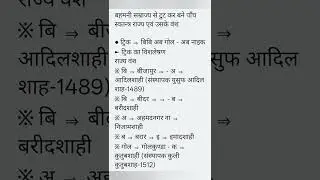 बहमनी सम्राज्य से टुट कर बने पाँच
स्वतन्त्र राज्य एवं उसके वंश
● ट्रिक ⇒ बिबि अब गोल - अब नाइक
► ट्रिक का विश्लेषण
राज्य वंश
※ बि ⇒ बीजापुर ⇒ - अ ⇒
आदिलशाही (संस्थापक युसुफ आदिल
शाह-1489)
※ बि ⇒ बीदर ⇒ - ब ⇒
बरीदशाही
※ अ ⇒ अहमदनगर ना ⇒
निजामशाही
※ ब ⇒ बरार ⇒ इ ⇒ इमादशाही
※ गोल ⇒ गोलकुण्डा - क ⇒
कुतुबशाही (संस्थापक कुली
कुतुबशाह-1512)